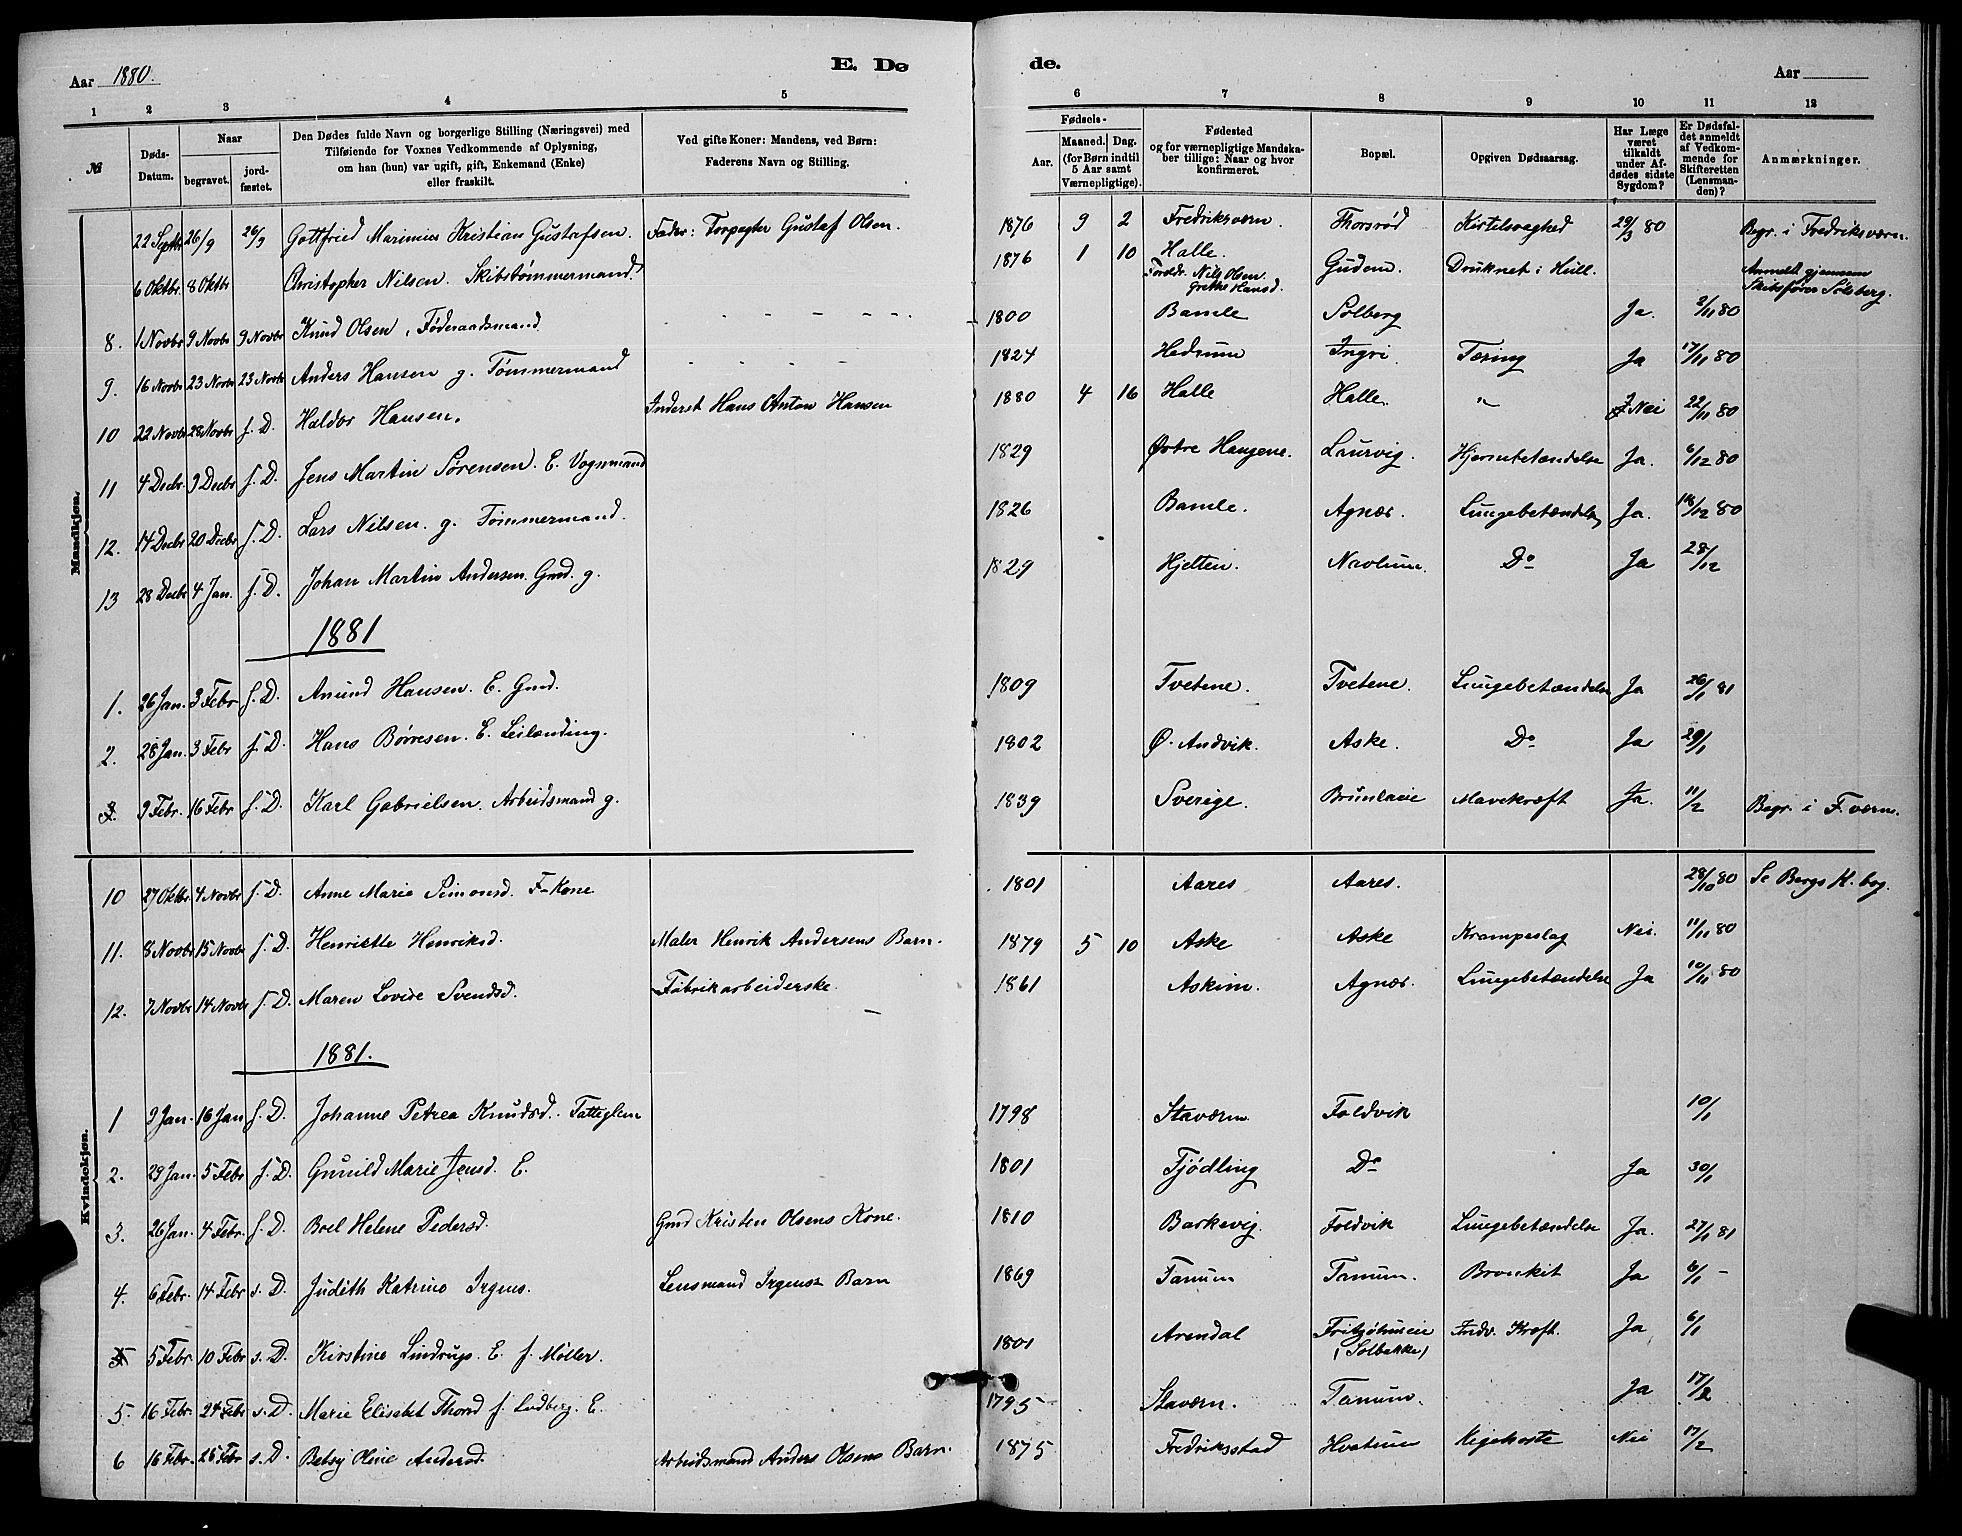 Aar 1880. E. Dø de. Aar
1 2 3 4 5 6 7 8 9 10 11 12
№ Døds-Datum. Naar begravet. jord-fæstet. Den Dødes fulde Navn og borgerlige Stilling (Næringsvei) med Tilføiende for Voxnes Vedkommende af Oplysning, om han (hun) var ugift, gift, Enkemand (Enke) eller fraskilt. Ved gifte Koner: Mandens, ved Børn: Faderens Navn og Stilling. Fødsels- Aar. Maaned. Dag. (for Børn indtil 5 Aar samt Værnepligtige). Fødested og for værnepligtige Mandskaber tillige: Naar og hvor konfirmeret. Bopæl. Opgiven Dødsaarsag. Har Læge været tilkaldt under Afdødes sidste Sygdom? Er Dødsfaldet anmeldt af Vedkommende for Skifteretten (Lensmanden)? Anmærkninger.
Mandkjøn.
22 Septbr 26/9 26/9 Gottfried Marinius Kristian Gustafsen. Fader: Forpagter Gustaf Olsen. 1876 9 2 Fredriksværn. Thorsrød Kirtelsvaghed 29/3 80 Begr. i Fredriksværn.
6 Oktbr. 8 Oktbr Christopher Nilsen. Skibstømmermand 1876 1 10 Halle. Foreldr. Nils Olsen. Grethe Hansd. Gudem. Druknet i Hull. Anmeldt gjennem Skibsfører Sølsberg.
8. 1 Novbr 9 Novbr 9 Novbr Knud Olsen, Føderaadsmand - - - - - - 1800 Bamle Solberg Ja. 2/11 80
9. 16 Novbr 23 Novbr 23 Novbr Anders Hansen g. Tømmermand - - - - 1824 Hedrum Ingri Tæring Ja 17/11 80
10 22 Novbr 28 Novbr s. D. Haldor Hansen. Inderst Hans Anton Hansen 1880 4 16 Halle Halle. " Nei 22/11 80
11 4 Decbr. 9 Decbr s. D. Jens Martin Sørensen. E. Vognmand 1829 Østre Haugene. Laurvig. Hjernebetændelse Ja. 6/12 80
12. 14 Decbr 20 Decbr s. D. Lars Nilsen. g. Tømmermand. 1826 Bamle. Agnæs. Lungebetændelse Ja. 18/12 80
13 28 Decbr 4 Jan. s. D. Johan Martin Andersen. Gmd. g. 1829 Hjelten. Navlum. Do Ja 28/12
1881
1. 26 Jan. 3 Febr s. D. Amund Hansen. E. Gmd. 1809 Tvetene. Tvetene. Lungebetændelse Ja 26/1 81
2. 28 Jan. 3 Febr s. D. Hans Børresen. E. Leilænding. 1802 Ø. Andvik. Aske. Do Ja 29/1
3. 9 Febr. 16 Febr s. D. Karl Gabrielsen. Arbeidsmand g. 1839 Sverige. Brunlanie Mavekræft Ja. 11/2 Begr. i F.værn.
Kvindekjøn.
10 27 Oktbr. 4 Novbr s. D. Anne Marie Simonsd. F-Kone 1801 Aares Aares. 28/10 80 Se Bergs K. bog.
11. 8 Novbr 15 Novbr s. D. Henriette Henriksd. Maler Henrik Andersens Barn. 1879 5 10 Aske Aske Krampeslag Nei. 11/11 80
12. 7 Novbr 14 Novbr s. D. Maren Lovise Svendsd. Fabrikarbeiderske. 1861 Askim. Agnæs. Lungebetændelse Ja 10/11 80
1881.
1 9 Jan. 16 Jan s. D. Johanne Petrea Knudsd. Fattiglem 1798 Staværn. Foldvik 10/1
2. 29 Jan. 5 Febr s. D. Gunild Marie Jensd. E. 1801 Tjødling Do Ja 30/1
3. 26 Jan 4 Febr. s. D. Boel Helene Pedersd. Gmd Kristen Olsens Kone. 1810 Barkevig. Foldvik Lungebetændelse Ja. 27/1 81
4. 6 Febr. 14 Febr s. D. Judith Katrine Irgens. Lensmand Irgens's Barn 1869 Tanum Tanum. Bronkit Ja 6/1 -
5 5 Febr 10 Febr s. D. Kirstine Lindrup. E. f. Møller. 1801 Arendal Fritzøhuseie (Solbakke) Indv. Kræft. Ja 6/1
5. 16 Febr. 24 Febr s. D. Marie Elisabet Thorsd f. Lodberg. E. 1795 Staværn. Tanum. Ja 17/2
6 16 Febr. 25 Febr s. D. Betsy Oline Andersd. Arbeidsmand Anders Olsens Barn. 1875 Fredriksstad Hvatum Kigehoste Nei 17/2